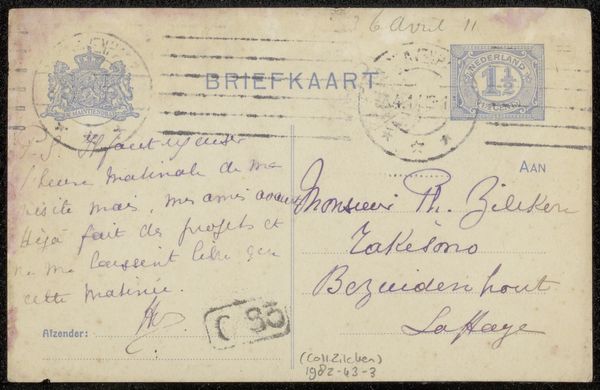 6 Avril 11
BRIEFKAART
NEDERLAND
1½
AAN
P.S. Il faut
l'heure matinale de ma
visite mais, mes amis avaient
déjà fait des projets et
ne me laissent libre que
cette matinée.
Afzender:
G 85
Monsieur Ph. Zilcken
Bezuidenhout
La Haye
(Coll Zilcken)
1982-43-3